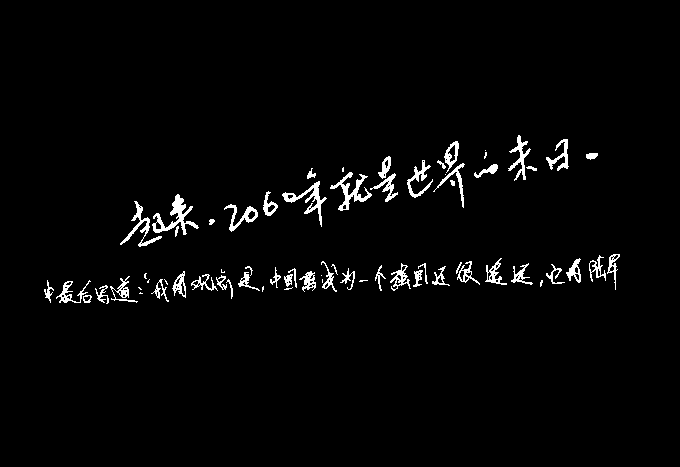 起来,2060年就是世界的末日。
中最后写道:“我的观点是,中国要成为一个强国还很遥远,它的陆军